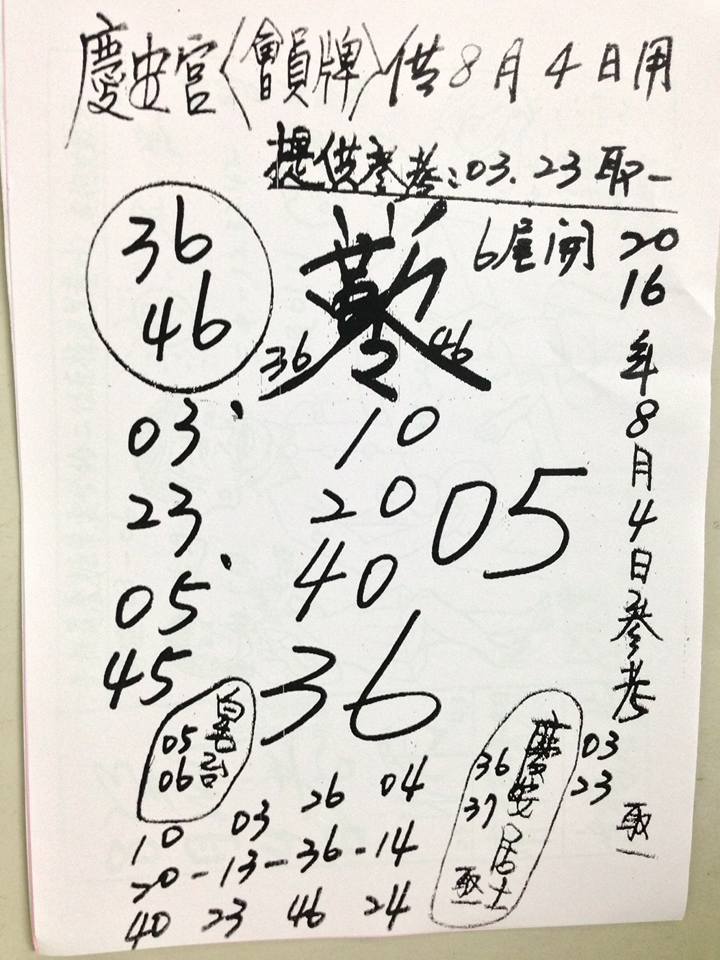 慶安宮〈會員牌〉供8月4日用
提供參考:03.23取一
36
46
6尾開
36 46
2016年8月4日參考
03 10
23 20
05 40
45
05
36
05
06
慶安居士
36
37
取一
03
23
取一
26 04
10 03
20-13-36-14
40 23 46 24